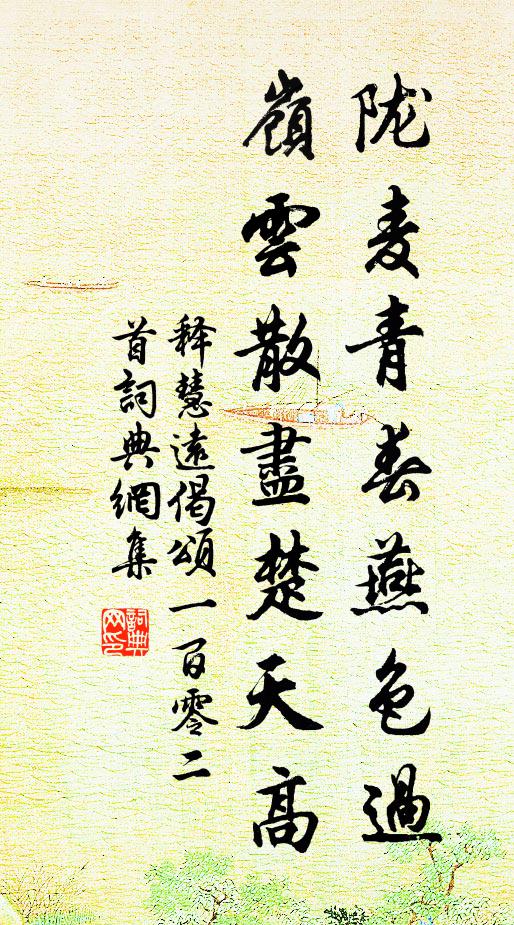 陇麦青春燕色過
嶺雲散盡楚天高
释慧遠偈頌一百零二
首詞典網集
詞典网印